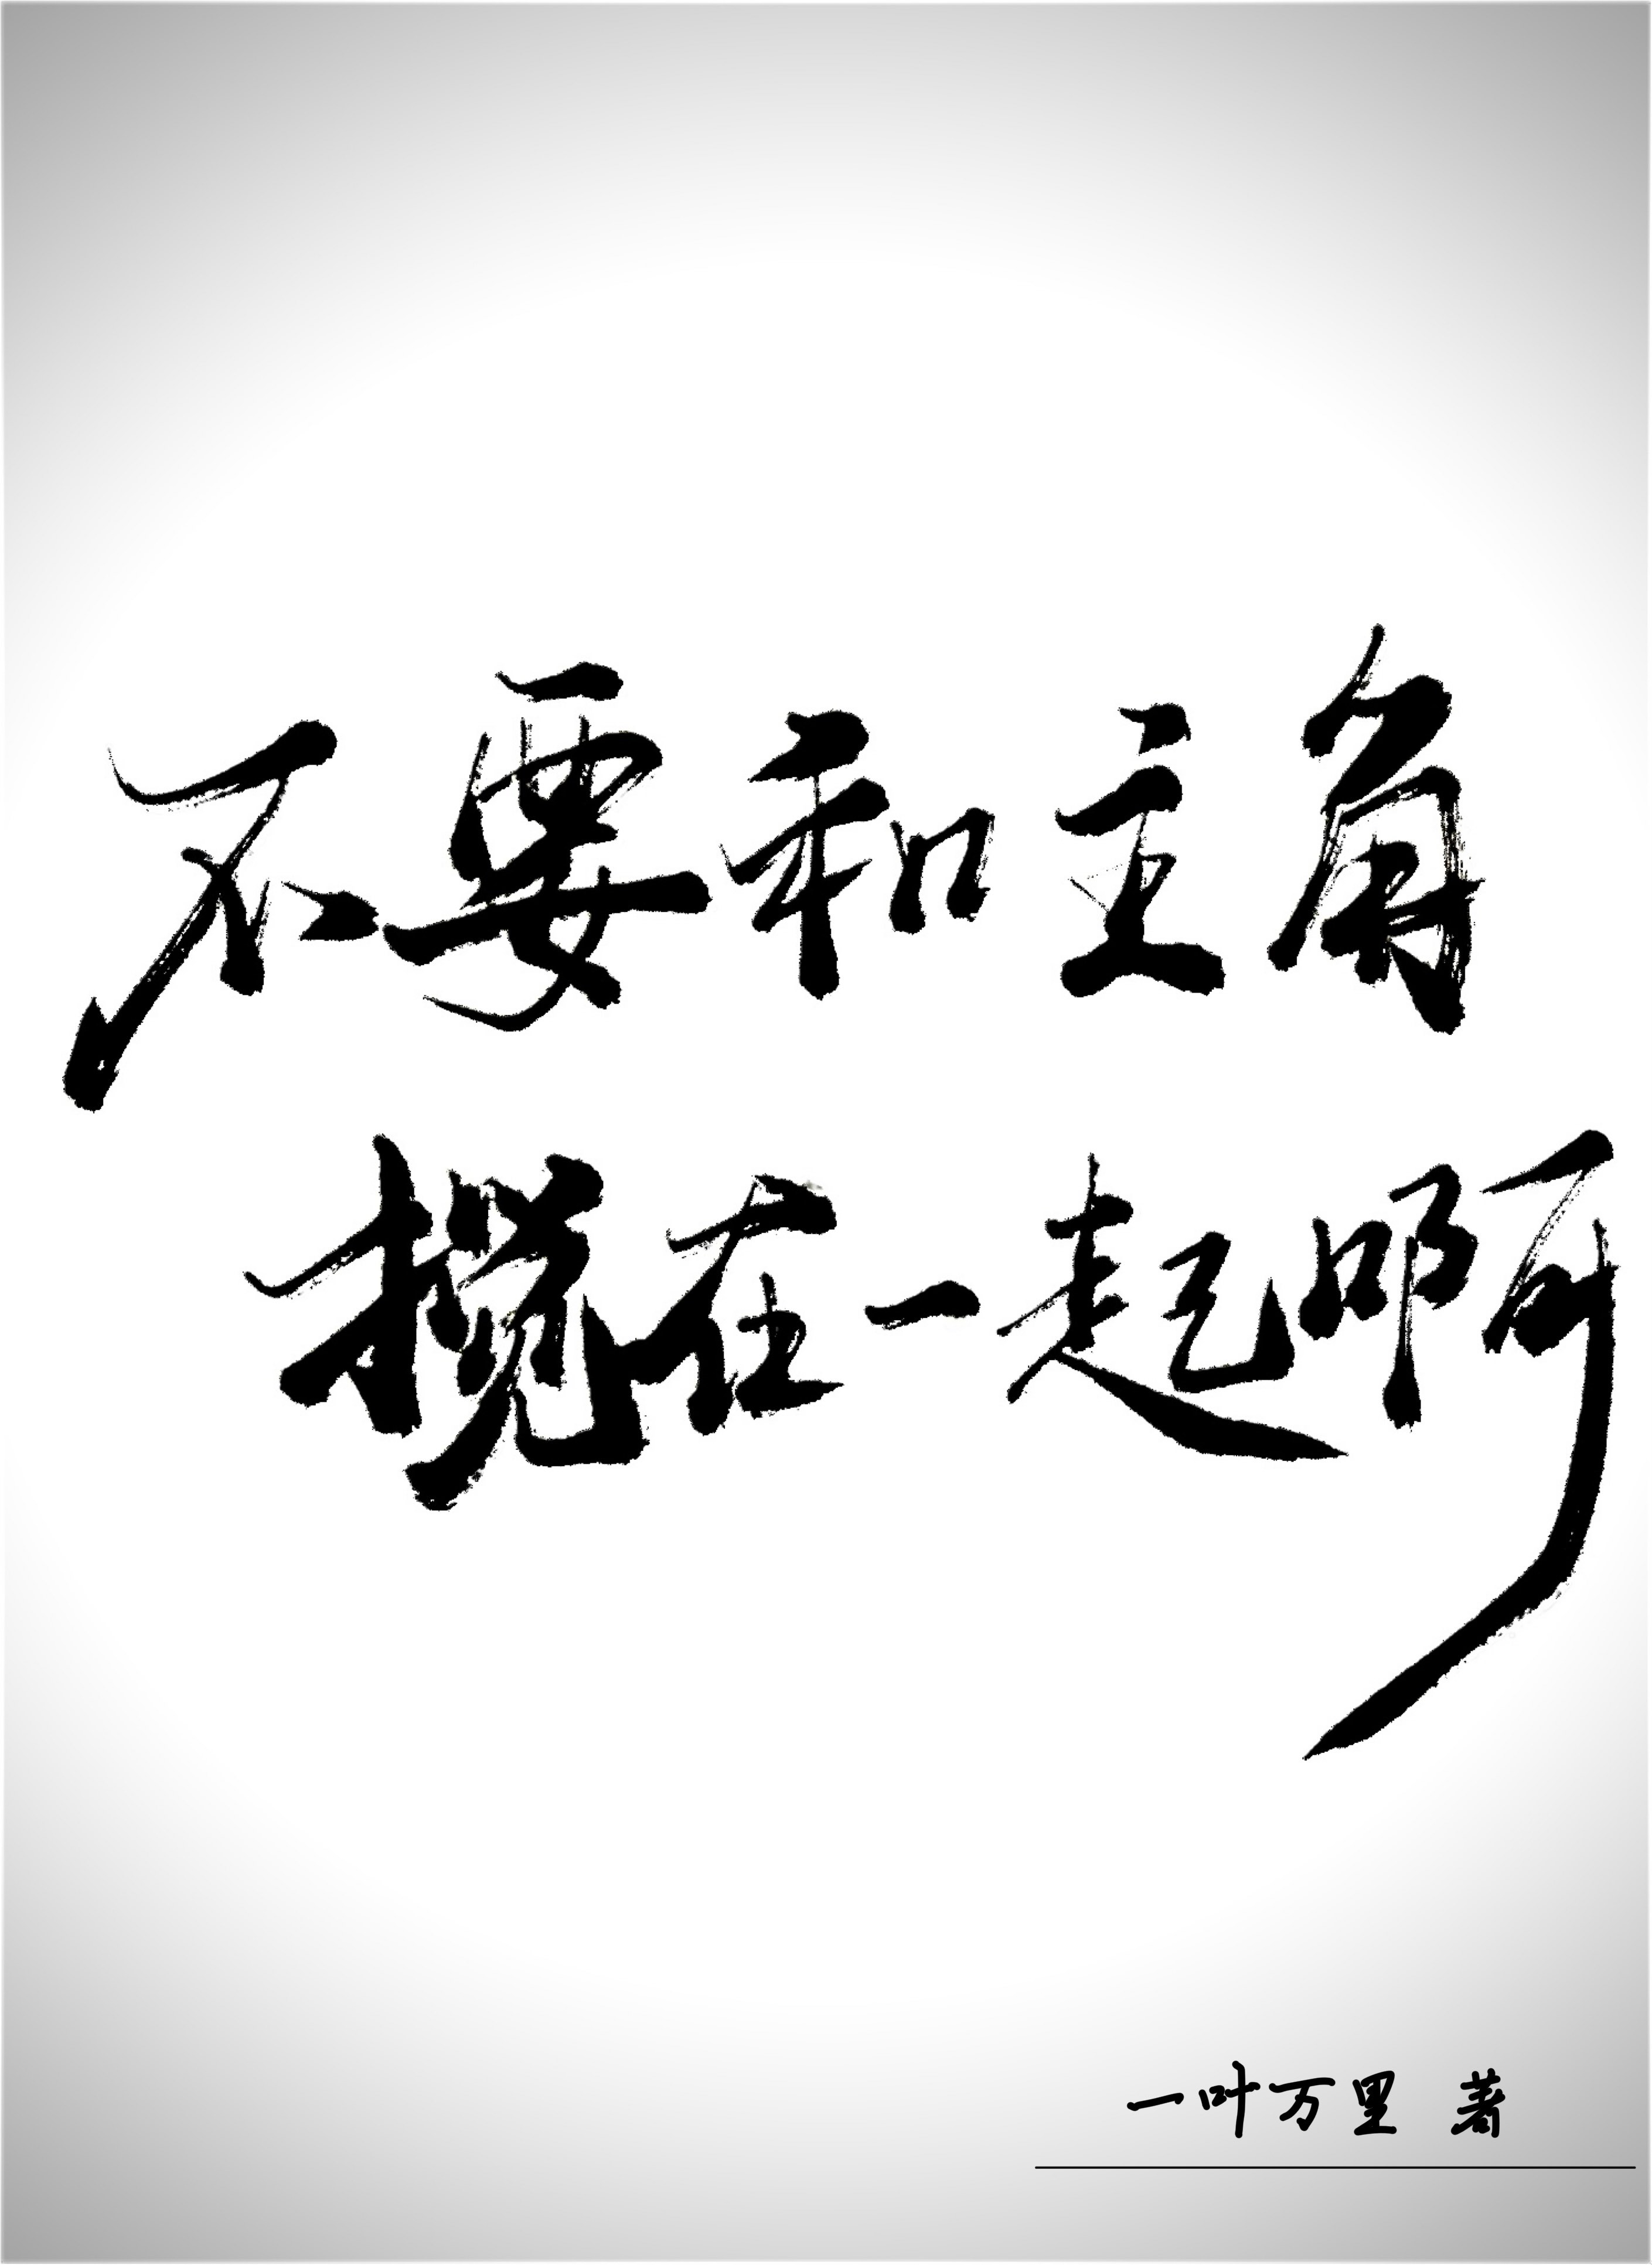 不要和主角
搅在一起啊
一叶万里 著